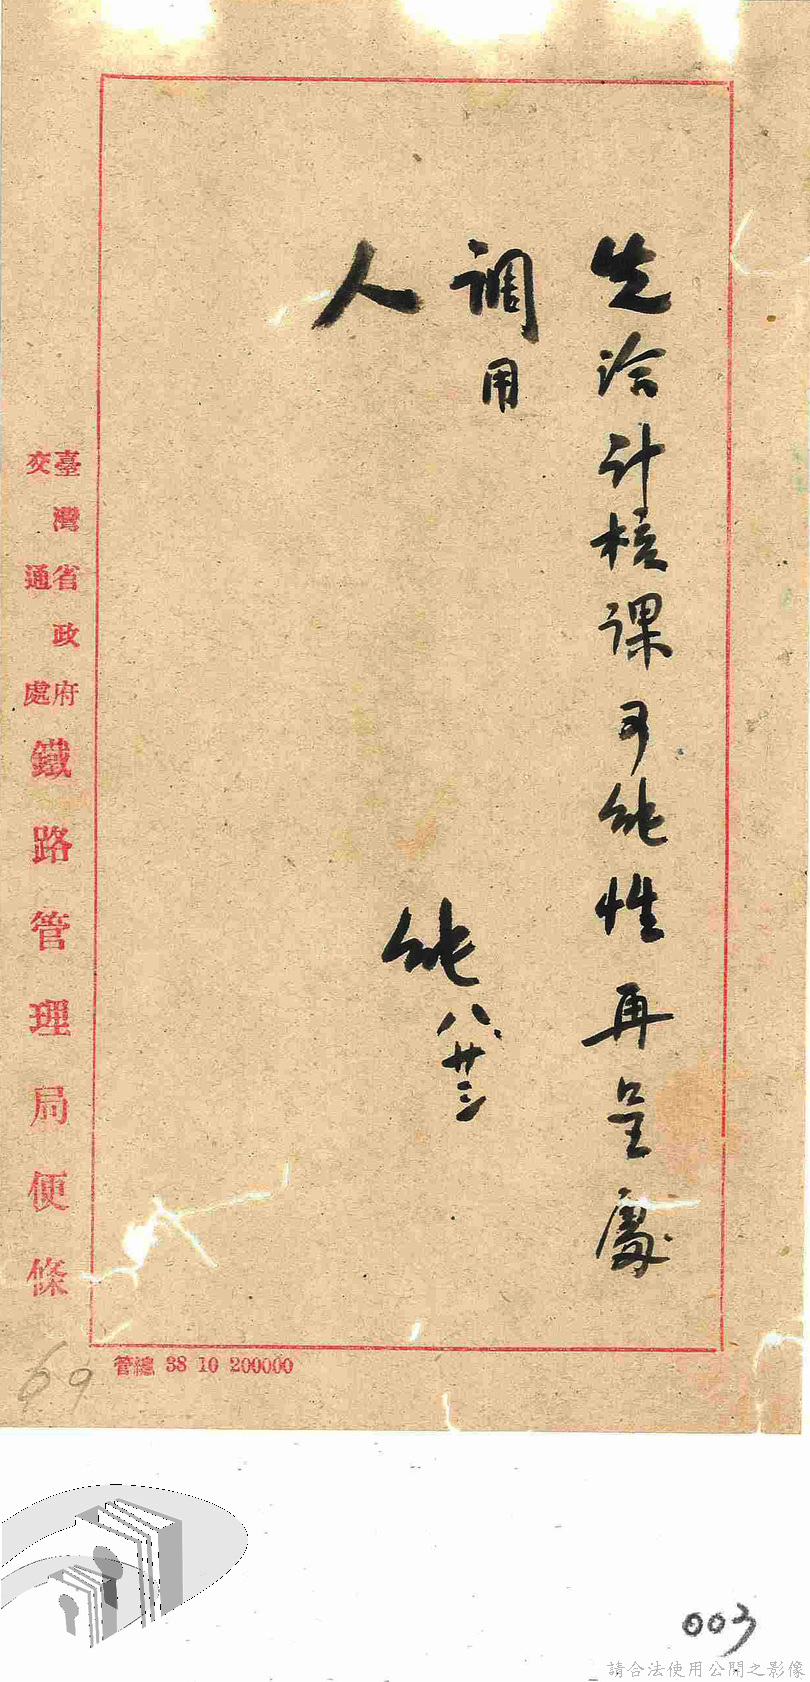 先洽計核課可能性再呈處
調用
人
能 八、廿三
臺灣省政府
交通處
鐵路管理局便條
管總 38 10 200000
69
003
請合法使用公開之影像